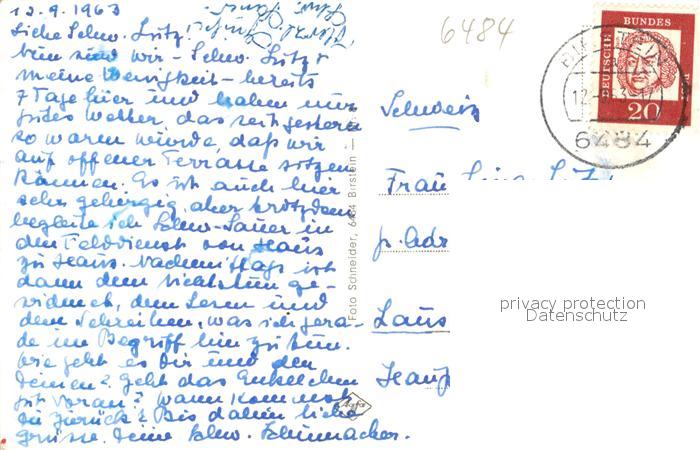 12.9.1963
Liebe Schw. Lutz!
Nun sind wir – Schw. Lutz +
meine Wenigkeit – bereits
7 Tage hier und haben nur
gutes Wetter, das seit gestern
so warm wurde, daß wir
auf offener Terrasse sitzen
können. Es ist auch hier
sehr gebirgig, aber trotzdem
begleite ich Schw. Sauer in
den Felddienst von Haus
zu Haus. Nachmittags ist
dann dem Nichtstun ge-
widmet, dem Lesen und
dem Schreiben, was ich gera-
de im Begriff bin zu tun.
Wie geht es Dir und den
Deinen? Geht das Enkelchen
gut voran? Wann kommst
Du zurück? Bis dahin liebe
Grüsse. Deine Schw. Schumacher.
Foto Schneider, 6484 Birstein
6484
DEUTSCHE BUNDES
20
BIRSTEIN
6484
Schweiz
Frau
p. Adr
Laus
Hauf
privacy protection
Datenschutz